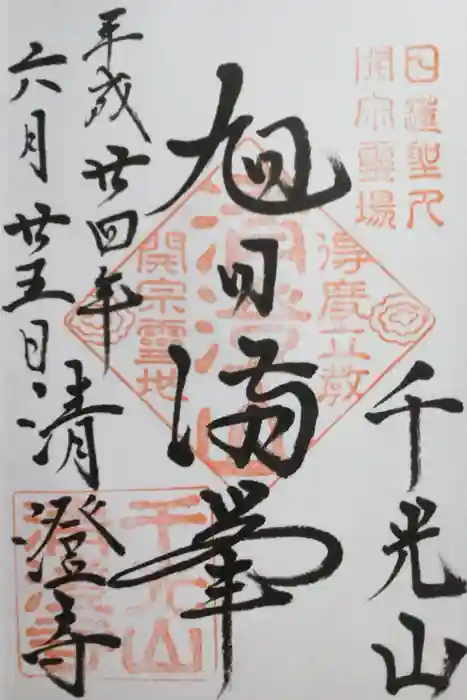 日蓮聖人
開宗靈場
千光山
得度立教
開宗霊地
旭日満峯
平成廿四年
六月廿五日
清澄寺
千光山
清澄寺